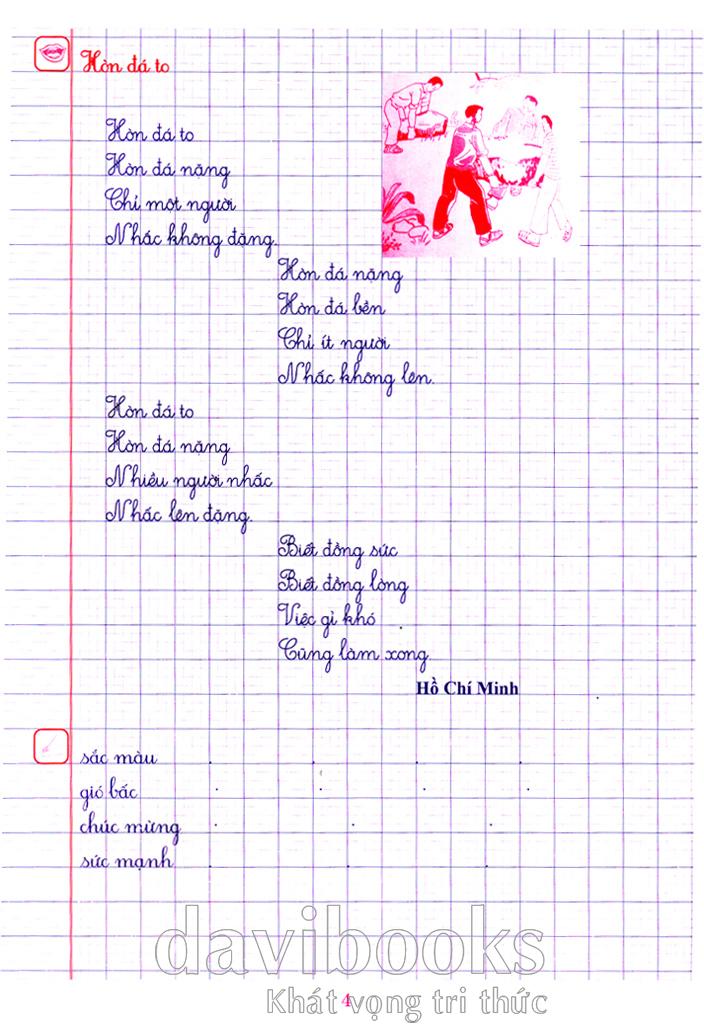 Hòn đá to
Hòn đá to
Hòn đá nặng
Chỉ một người
Nhấc không đặng.
Hòn đá nặng
Hòn đá bền
Chỉ ít người
Nhấc không lên.
Hòn đá to
Hòn đá nặng
Nhiều người nhấc
Nhấc lên đặng.
Biết đồng sức
Biết đồng lòng
Việc gì khó
Cũng làm xong
Hồ Chí Minh
sắc màu
gió bấc
chúc mừng
sức mạnh
davibooks
Khát vọng tri thức
4